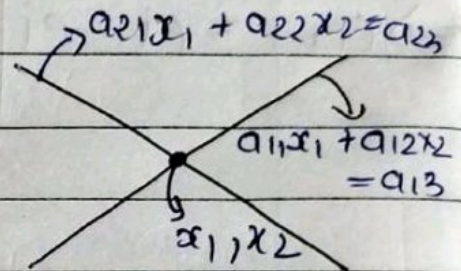 a21x1 + a22x2 = a23
a11x1 + a12x2
= a13
x1, x2